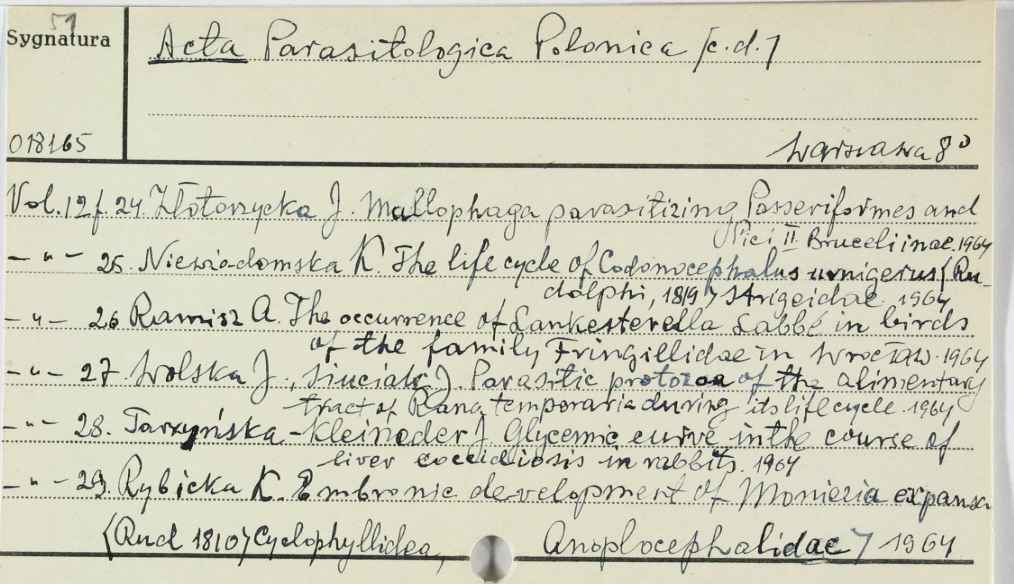 51
Sygnatura
Acta Parasitologica Polonica [c.d.]
018165
Warszawa 8°
Vol. 12 f. 24. Złotorzycka J. Mallophaga parasitizing Passeriformes and
Pici II Brueeliinae. 1964
– " – 25. Niewiadomska K. The life cycle of Codonocephalus urnigerus (Ru-
dolphi, 1819) Strigeidae. 1964
– " – 26 Ramisz A. The occurrence of Lankesterella Labbé in birds
of the family Fringillidae in Wrocław. 1964
– " – 27. Wolska J., Siuciak J. Parasitic protozoa of the alimentary
tract of Rana temporaria during its life cycle. 1964
– " – 28. Tarzyńska-Kleineder J. Glycemic curve in the course of
liver coccidiosis in rabbits. 1964
– " – 29. Rybicka K. Embronic development of Moniezia expansa
(Rud 1810) Cyclophyllidea, Anoplocephalidae) 1964